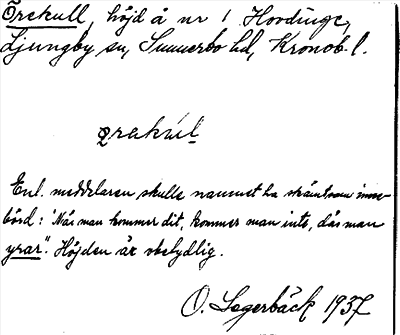 Örekull, höjd å nr 1 Hovdinge,
Ljungby sn, Sunnerbo hd, Kronob. l.
Enl. meddelaren skulle namnet ha skämtsam inne-
börd: "När man kommer dit, kommer man inte, där man
yrar". Höjden är obetydlig.
O. Lagerbäck 1937